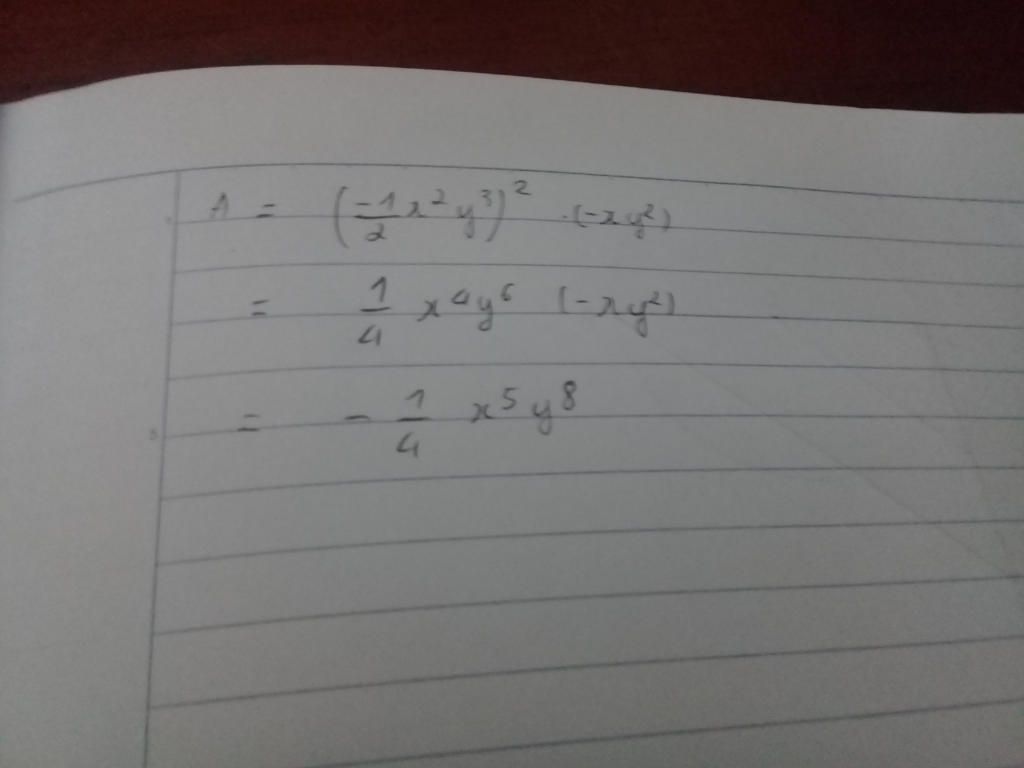 A = (-1/2 x² y³)² . (-xy²)
= 1/4 x⁴y⁶ (-xy²)
= - 1/4 x⁵y⁸